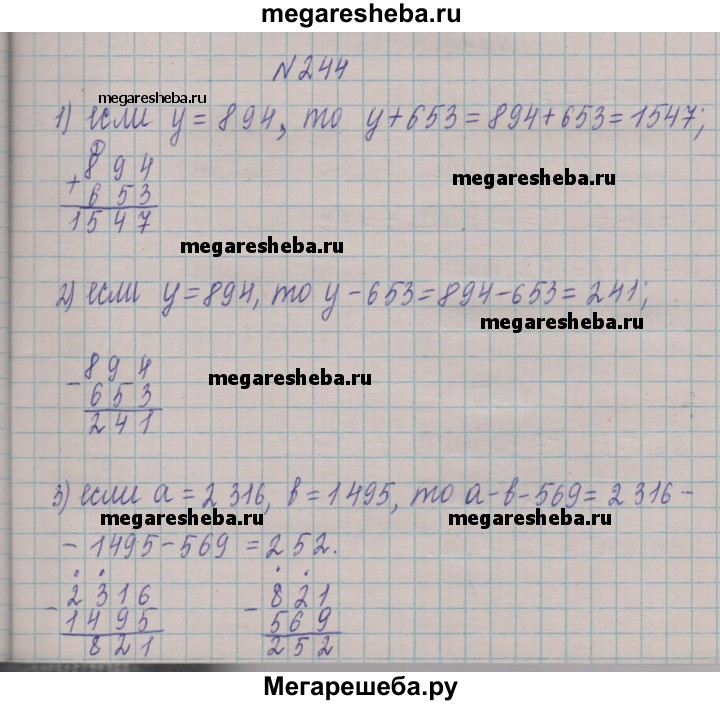 megaresheba.ru
N 244
megaresheba.ru
1) если y = 894, то y + 653 = 894 + 653 = 1547;
894
+
653
1547
megaresheba.ru
megaresheba.ru
2) если y = 894, то y - 653 = 894 - 653 = 241;
megaresheba.ru
894
-
653
241
megaresheba.ru
3) если a = 2 316, b = 1 495, то a - b - 569 = 2 316 -
megaresheba.ru megaresheba.ru
- 1495 - 569 = 252.
2316 821
- -
1495 569
821 252
Мегарешеба.ру